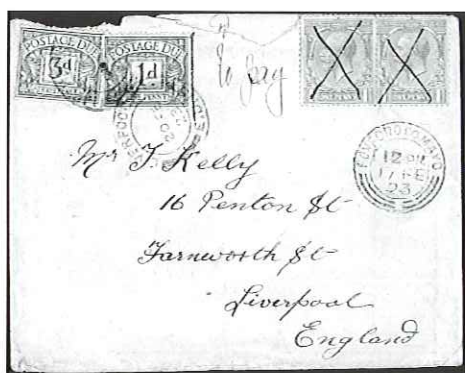 POSTAGE DUE POSTAGE DUE
3d 1d
To pay
12 PM
17 FE
23
Mr T. Kelly
16 Penton St
Farnworth St
Liverpool
England